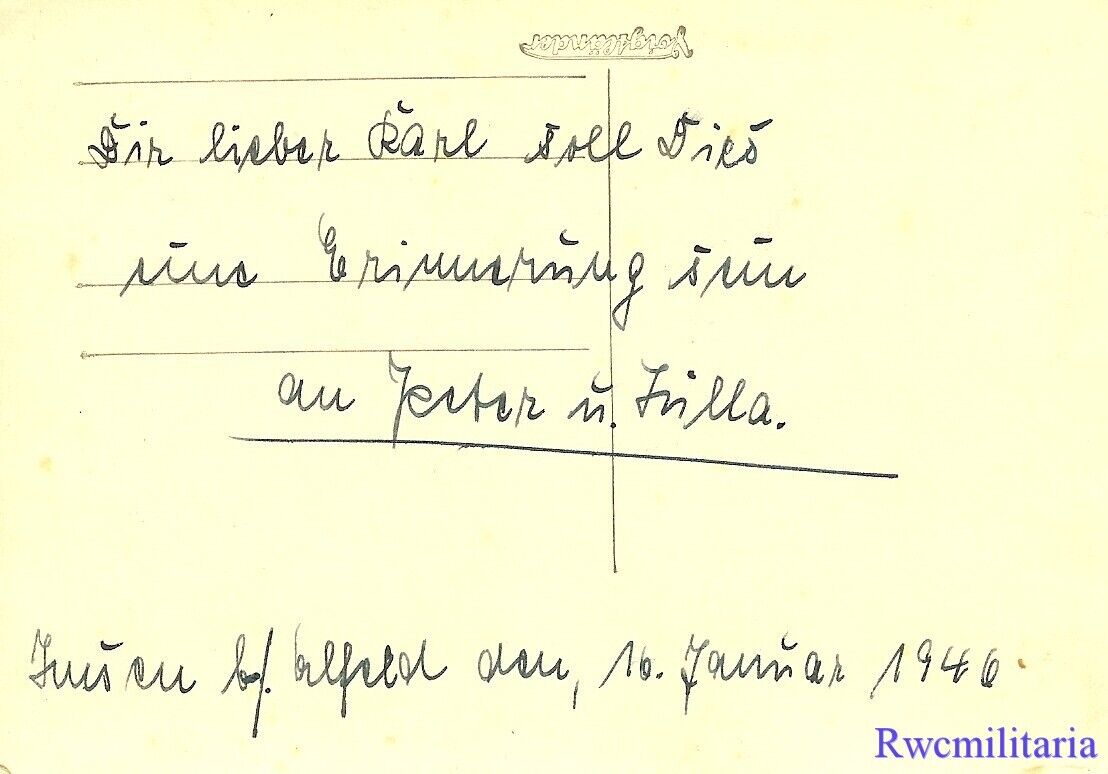 Voigtländer
Dir lieber Karl soll Dies
eine Erinnerung sein
an Peter u. Julla.
Imsen b/. Alfeld den, 16. Januar 1946.
Rwcmilitaria